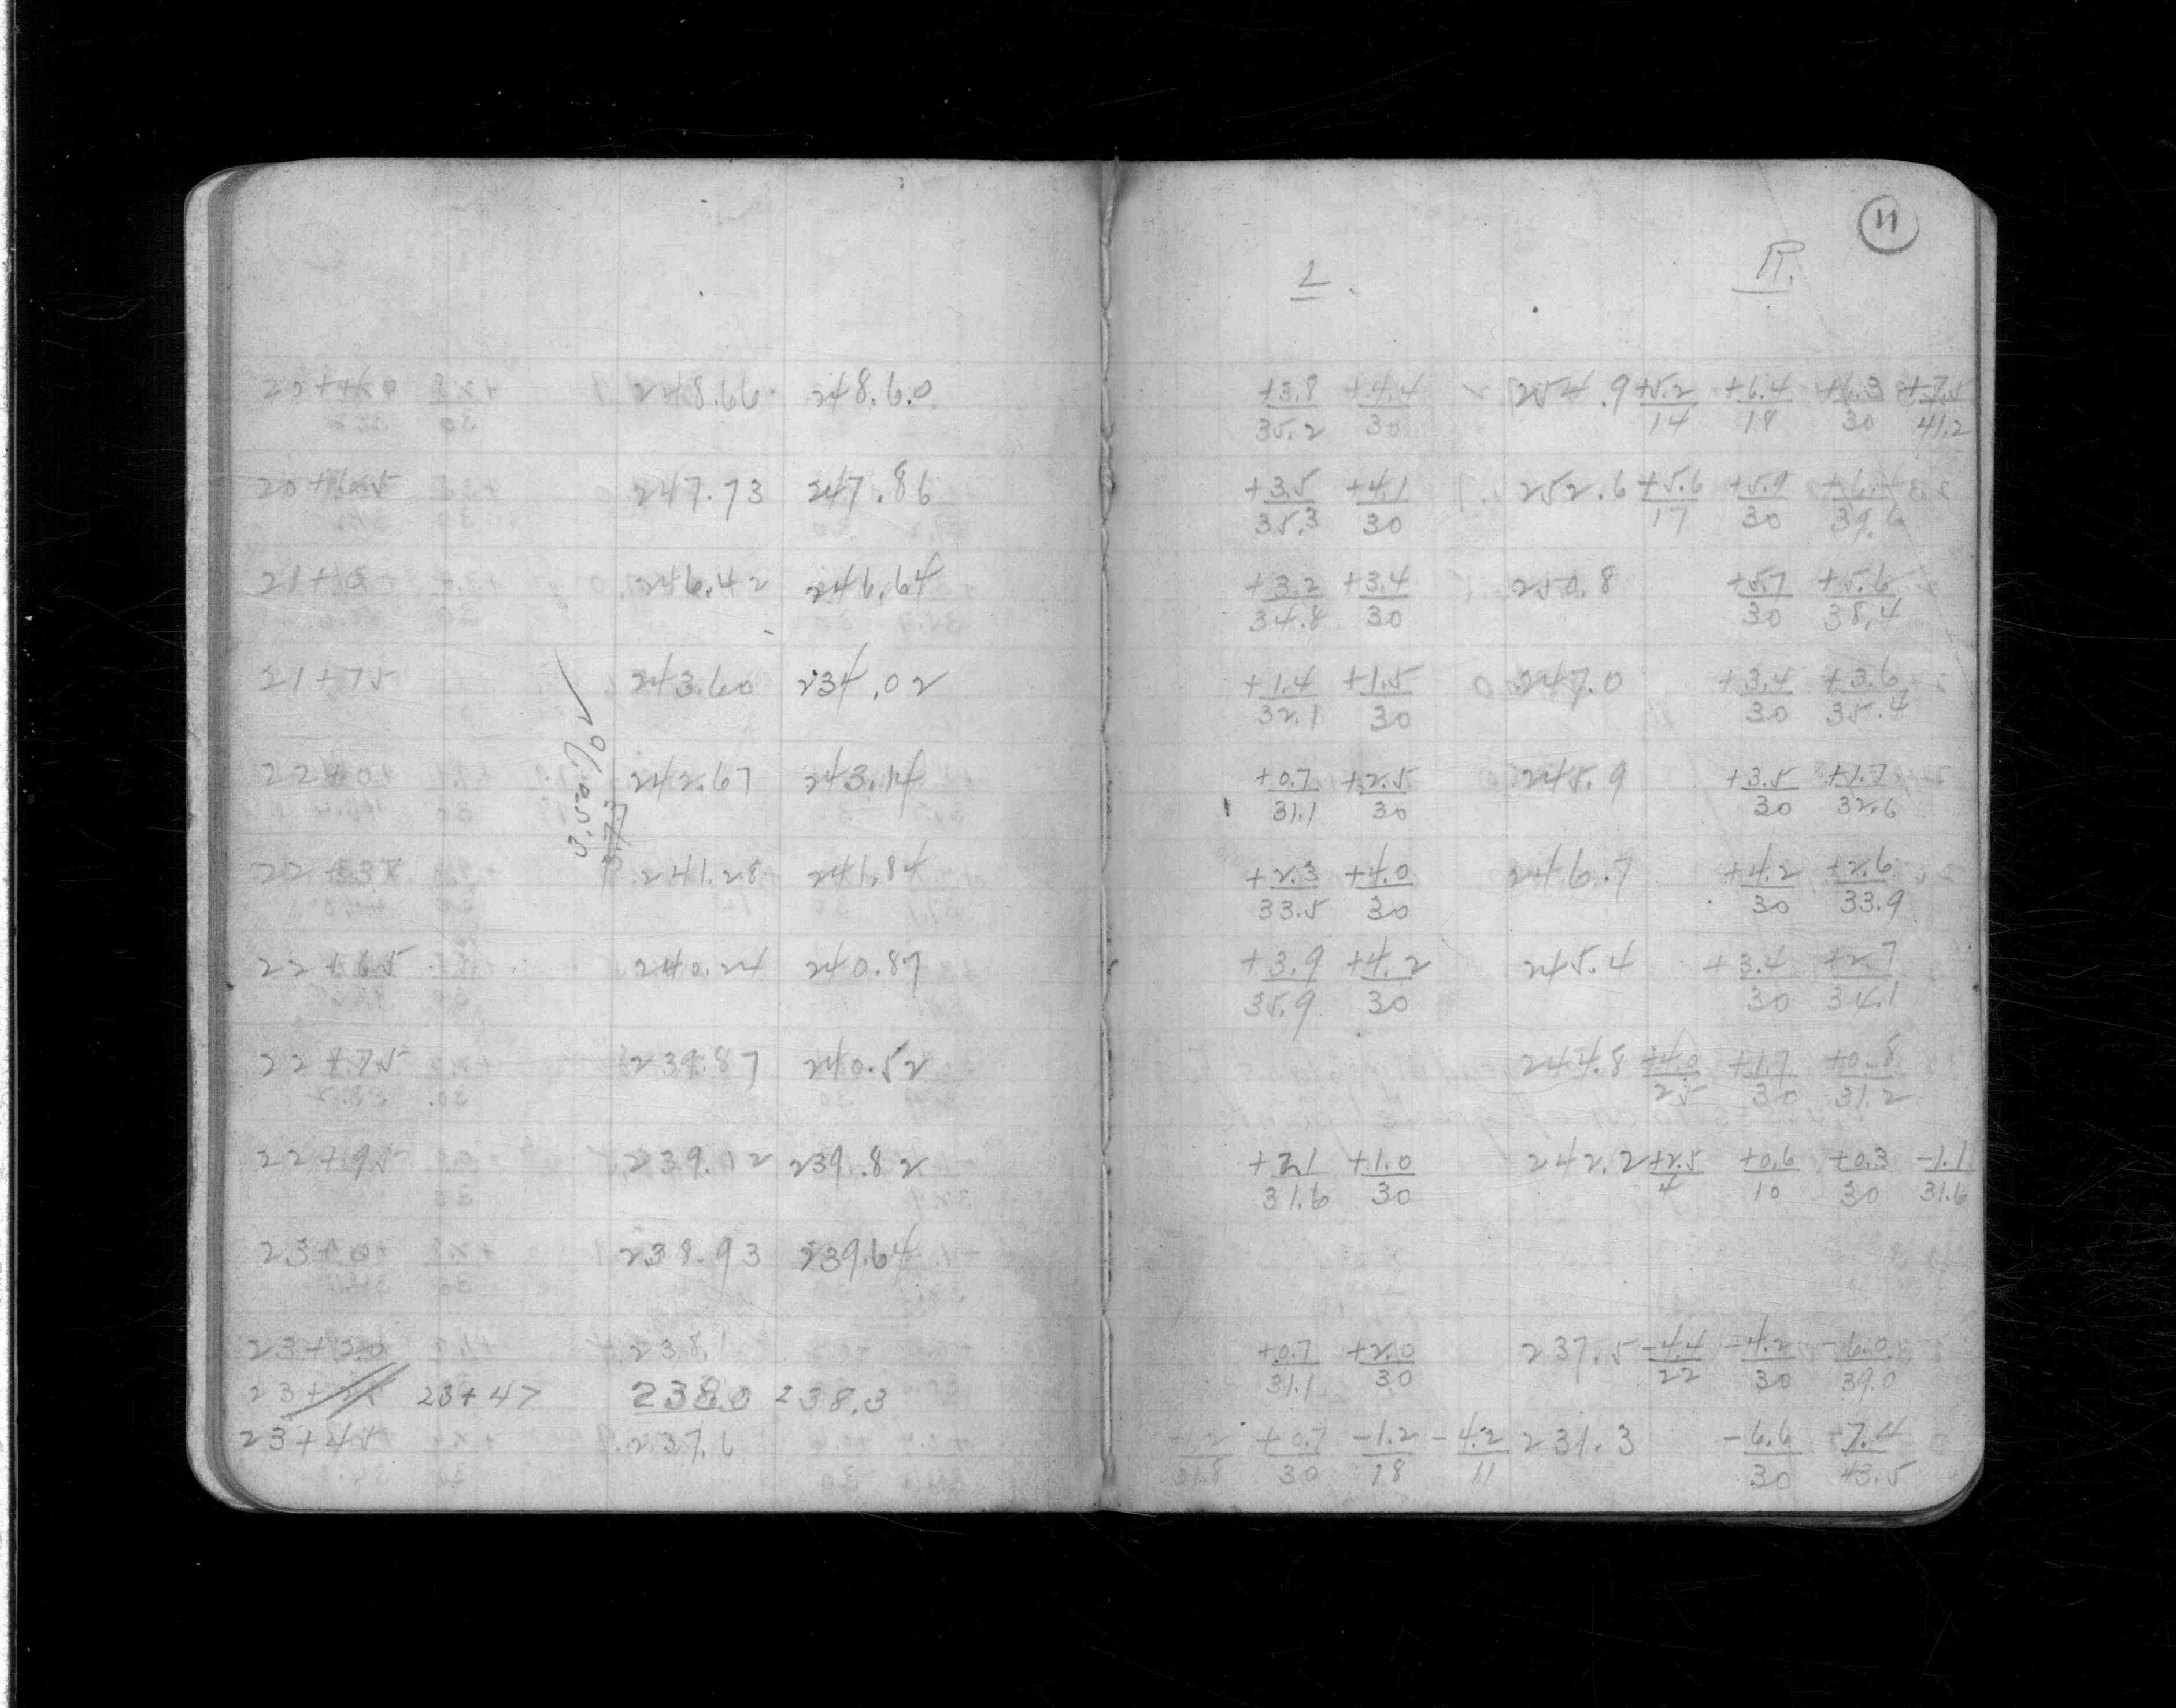 11
L. R.
20+40 248.66 248.60 +3.8/35.2 +4.4/30 254.9 +5.2/14 +6.4/18 +6.3/30 +7.5/41.2
20+65 247.73 247.86 +3.5/35.3 +4.1/30 252.6 +5.6/17 +5.9/30 +6.4/39.6
21+0 246.42 246.64 +3.2/34.8 +3.4/30 250.8 +5.7/30 +5.6/38.4
21+75 243.60 234.02 +1.4/32.1 +1.5/30 247.0 +3.4/30 +3.6/35.4
3.50%
3.73
22+0 242.67 243.14 +0.7/31.1 +2.5/30 245.9 +3.5/30 +1.7/32.6
22+37 241.28 241.84 +2.3/33.5 +4.0/30 246.7 +4.2/30 +2.6/33.9
22+65 240.24 240.87 +3.9/35.9 +4.2/30 245.4 +3.4/30 +2.7/34.1
22+75 239.87 240.52 244.8 +4.0/25 +1.7/30 +0.8/31.2
22+95 239.12 239.82 +2.1/31.6 +1.0/30 242.2 +2.5/4 +0.6/10 +0.3/30 -1.1/31.6
23+0 238.93 239.64
23+20 238.1 +0.7/31.1 +2.0/30 237.5 -4.4/22 -4.2/30 -6.0/39.0
23+47 238.0 238.3
23+45 237.6 +0.7/30 -1.2/18 -4.2/11 231.3 -6.6/30 -7.4/43.5